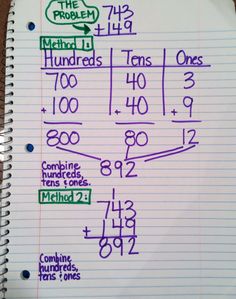 THE PROBLEM
743
+149
Method 1:
Hundreds Tens Ones
700 40 3
+100 +40 +9
800 80 12
Combine hundreds, tens & ones.
892
Method 2:
1
743
+149
892
Combine hundreds, tens & ones